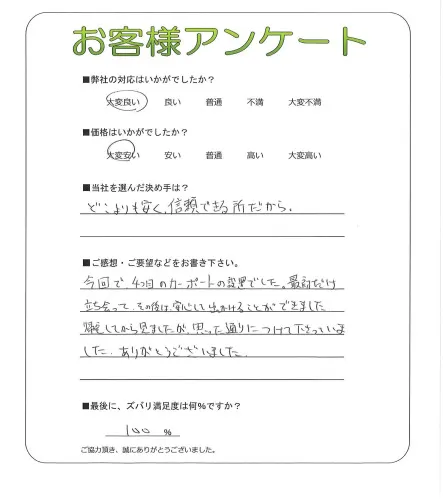 お客様アンケート
■弊社の対応はいかがでしたか?
大変良い 良い 普通 不満 大変不満
■価格はいかがでしたか?
大変安い 安い 普通 高い 大変高い
■当社を選んだ決め手は?
どこよりも安く、信頼できる所だから。
■ご感想・ご要望などをお書き下さい。
今回で、4つ目のカーポートの設置でした。最初だけ
立ち会って、その後は、安心して出かけることができました
帰宅してから見ましたが、思った通りにつけて下さっていま
した。ありがとうございました。
■最後に、ズバリ満足度は何%ですか?
100 %
ご協力頂き、誠にありがとうございました。